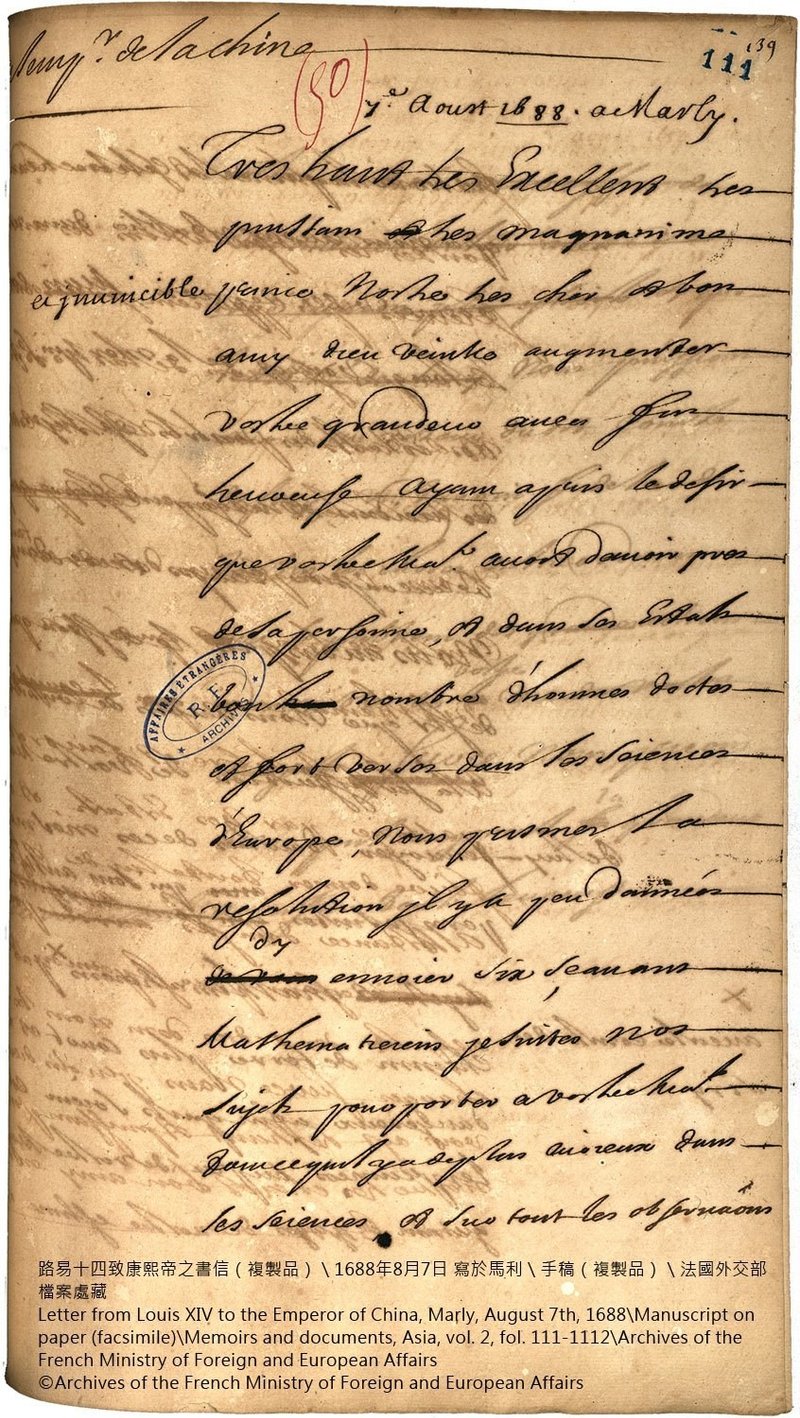 de la chine
(50)
111
139
7.e Aoust 1688. a Marly.
Tres haut tres Excellent tres
puissant tres magnanime
et jnuincible prince Nostre tres cher et bon
amy dieu veuille augmenter
vostre grandeur auec fin
heureuse Ayant apris le desir
que vostre Ma.te auoit dauoir pres
de sa personne, et dans ses Estats
bon nombre d'hommes doctes
et fort versés dans les sciences
d'Europe, Nous prismes la
resolution jl y a peu dannées
dy
ennoier six sçauans
Mathematiciens jesuites nos
sujets pour porter a vostre Ma.té
de plus curieux dans
les sciences, et sur tout les obseruaôns
AFFAIRES ÉTRANGÈRES
R.F.
ARCHIVES
路易十四致康熙帝之書信（複製品）\ 1688年8月7日 寫於馬利 \ 手稿（複製品）\ 法國外交部
檔案處藏
Letter from Louis XIV to the Emperor of China, Marly, August 7th, 1688\Manuscript on
paper (facsimile)\Memoirs and documents, Asia, vol. 2, fol. 111-1112\Archives of the
French Ministry of Foreign and European Affairs
©Archives of the French Ministry of Foreign and European Affairs